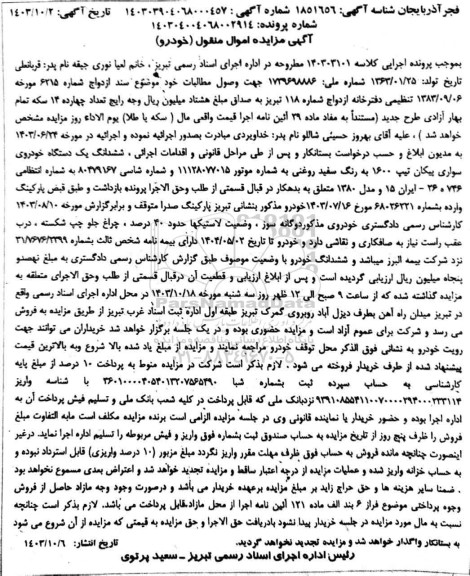 فجرآذربایجان شناسه آگهی: ۱۸۵۱۶۵۶ شماره آگهی : ۱۴۰۳۰۳۹۰۴۰۶۸۰۰۰۴۵۷ تاریخ آگهی: ۱۴۰۳/۱۰/۲
شماره پرونده: ۱۴۰۳۰۴۰۰۴۰۶۸۰۰۲۹۱۴
آگهی مزایده اموال منقول (خودرو)
بموجب پرونده اجرایی کلاسه ۱۴۰۳۰۳۱۰۱ مطروحه در اداره اجرای اسناد رسمی تبریز ، خانم لعیا نوری جیقه نام پدر: قربانعلی
تاریخ تولد: ۱۳۶۳/۰۱/۲۵ شماره ملی: ۱۷۳۹۶۹۸۸۸۶ جهت وصول مطالبات خود موضوع سند ازدواج شماره ۶۲۱۵ مورخه
۱۳۸۳/۰۹/۰۶ تنظیمی دفترخانه ازدواج شماره ۱۱۸ تبریز به صداق مبلغ هشتاد میلیون ریال وجه رایج تعداد چهارده ۱۴ سکه تمام
بهار آزادی طرح جدید (مستنداً به مفاد ماده ۲۹ آئین نامه اجرا قیمت واقعی مال ( سکه یا طلا) یوم الاداء روز مزایده مشخص
خواهد شد ) ، علیه آقای بهروز حسینی شاللو نام پدر: خداویردی مبادرت بصدور اجرائیه نموده و اجرائیه در مورخه ۱۴۰۳/۰۶/۲۴
به مدیون ابلاغ و حسب درخواست بستانکار و پس از طی مراحل قانونی و اقدامات اجرائی ، ششدانگ یک دستگاه خودروی
سواری پیکان تیپ ۱۶۰۰ به رنگ سفید روغنی به شماره موتور ۱۱۱۲۸۰۷۷۰۱۵ و شماره شاسی ۸۰۴۷۹۱۶۷ به شماره انتظامی
۷۴۶ ه ۳۶ - ایران ۱۵ و مدل ۱۳۸۰ متعلق به بدهکار در قبال قسمتی از طلب وحق الاجرا پرونده بازداشت و طبق قبض پارکینگ
وارده بشماره ۶۸۰۲۶۲۲۱ مورخ ۱۴۰۳/۰۷/۱۶ خودرو مذکور بنشانی تبریز پارکینگ صدرا متوقف و برابرگزارش مورخه ۱۴۰۳/۰۸/۱۰
کارشناس رسمی دادگستری خودروی مذکوردوگانه سوز ، وضعیت لاستیکها حدود ۴۰ درصد ، چراغ جلو چپ شکسته ، درب
عقب راست نیاز به صافکاری و نقاشی دارد و خودرو تا تاریخ ۱۴۰۴/۰۵/۰۲ دارای بیمه نامه شخص ثالث بشماره
نزد شرکت بیمه البرز میباشد و ششدانگ خودرو با وضعیت موصوف طبق گزارش کارشناس رسمی دادگستری به مبلغ نهصدو
پنجاه میلیون ریال ارزیابی گردیده است و پس از ابلاغ ارزیابی و قطعیت آن درقبال قسمتی از طلب وحق الاجرای متعلقه به
مزایده گذاشته شده که از ساعت ۹ صبح الی ۱۲ ظهر روز سه شنبه مورخه ۱۴۰۳/۱۰/۱۸ در محل اداره اجرای اسناد رسمی واقع
در تبریز میدان راه آهن بطرف دیزل آباد روبروی گمرک تبریز طبقه اول اداره ثبت اسناد غرب تبریز از طریق مزایده به فروش
می رسد و شرکت برای عموم آزاد است و مزایده حضوری بوده و در یک جلسه برگزار خواهد شد خریداران می توانند جهت
رویت خودرو به نشانی فوق الذکر محل توقف خودرو مراجعه نمایند و مزایده از مبلغ یاد شده بالا شروع وبه بالاترین قیمت
پیشنهاد شده از طرف خریدار فروخته می شود . لازم بذکر است شرکت در مزایده منوط به پرداخت ۱۰ درصد از مبلغ پایه
کارشناسی به حساب سپرده ثبت بشماره شبا با شناسه واریز
نزدبانک ملی که قابل پرداخت در کلیه شعب بانک ملی و تسلیم فیش پرداخت آن به
اداره اجرا بوده و حضور خریدار یا نماینده قانونی وی در جلسه مزایده الزامی است برنده مزایده مکلف است مابه التفاوت مبلغ
فروش را ظرف پنج روز از تاریخ مزایده به حساب صندوق ثبت بشماره فوق واریز و فیش مربوطه را تسلیم اداره اجرا نماید. درغیر
اینصورت چنانچه مانده فروش به حساب فوق ظرف مهلت مقرر واریز نگردد مبلغ مزبور (۱۰ درصد واریزی) قابل استرداد نبوده و
به حساب خزانه واریز شده و عملیات مزایده از درجه اعتبار ساقط و مزایده تجدید خواهد شد و اعتراض بعدی مسموع نخواهد بود
. ضمنا سایر هزینه ها و حق حراج زاید بر مبلغ مزایده برعهده خریدار می باشد و درصورت وجود وجه مازاد حاصل از فروش
وجوه پرداختی موضوع فراز ۶ بند الف ماده ۱۲۱ آئین نامه اجرا از محل مازاد،قابل پرداخت می باشد. لازم بذکر است چنانچه
نسبت به مال مورد مزایده در جلسه خریدار پیدا نشود بادریافت حق الاجرا و حق مزایده به قیمتی که مزایده از آن شروع می شود
به بستانکار واگذار خواهد شد و مزایده تجدید نخواهد گردید. تاریخ انتشار: ۱۴۰۳/۱۰/۶
رئیس اداره اجرای اسناد رسمی تبریز - سعید پرتوی